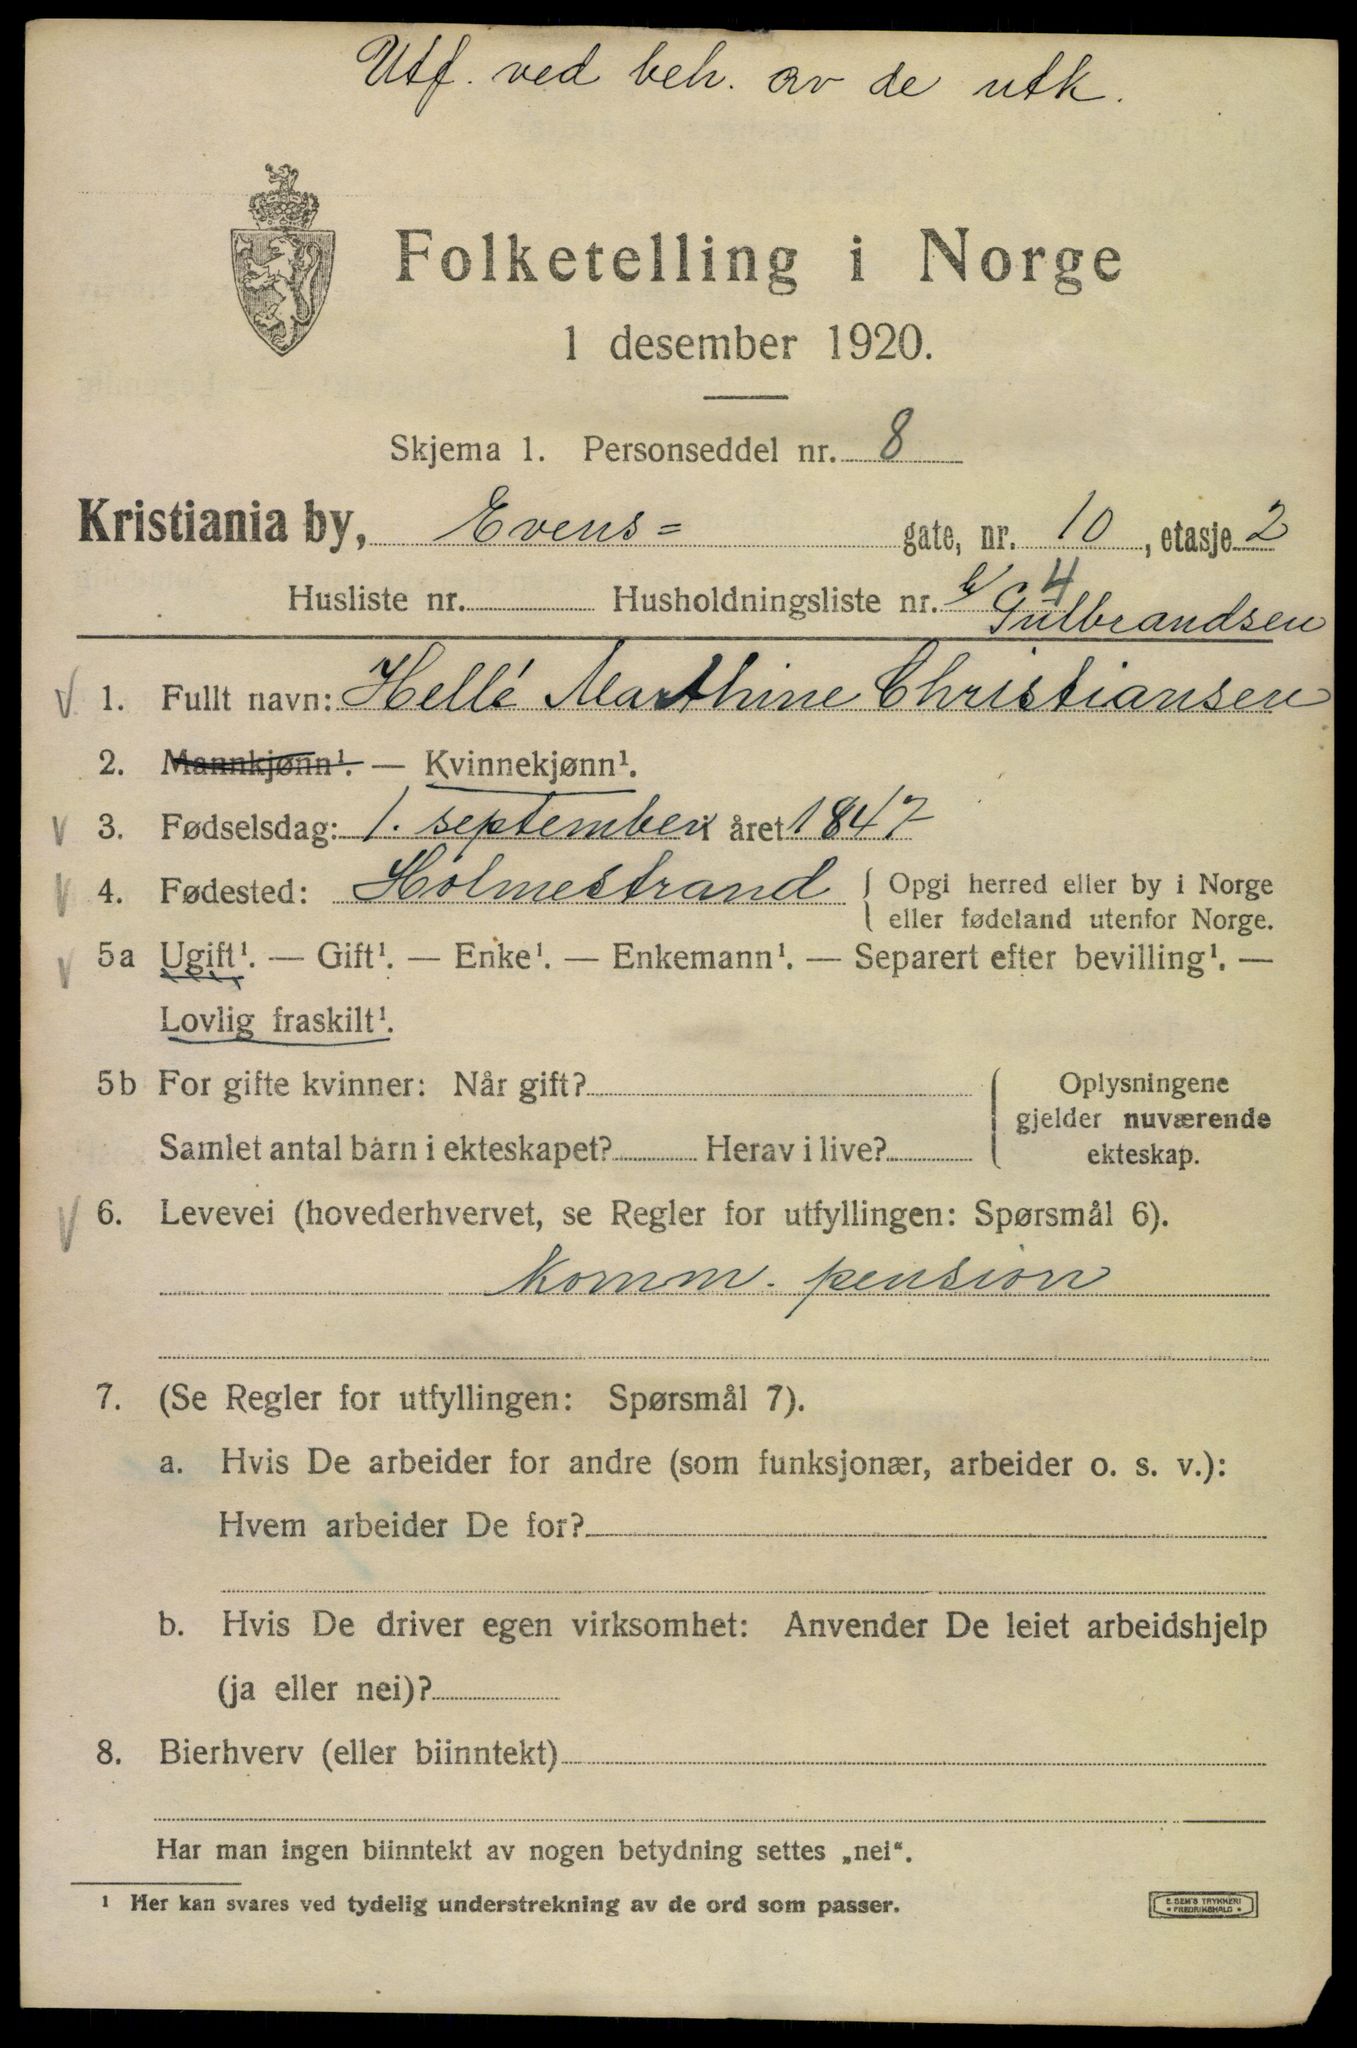 Utf. ved beh. av de utk.
Folketelling i Norge
1 desember 1920.
Skjema 1. Personseddel nr. 8
Kristiania by, Evens= gate, nr. 10, etasje 2
Husliste nr. Husholdningsliste nr. 4
b/ Gulbrandsen
1. Fullt navn: Hellé Marthine Christiansen
2. Mannkjønn¹. — Kvinnekjønn¹.
3. Fødselsdag: 1. september i året 1847
4. Fødested: Holmestrand { Opgi herred eller by i Norge
eller fødeland utenfor Norge.
5a Ugift¹. — Gift¹. — Enke¹. — Enkemann¹. — Separert efter bevilling¹. —
Lovlig fraskilt¹.
5b For gifte kvinner: Når gift? { Oplysningene
gjelder nuværende
Samlet antal barn i ekteskapet? Herav i live? ekteskap.
6. Levevei (hovederhvervet, se Regler for utfyllingen: Spørsmål 6).
Komm. pension
7. (Se Regler for utfyllingen: Spørsmål 7).
a. Hvis De arbeider for andre (som funksjonær, arbeider o. s. v.):
Hvem arbeider De for?
b. Hvis De driver egen virksomhet: Anvender De leiet arbeidshjelp
(ja eller nei)?
8. Bierhverv (eller biinntekt)
Har man ingen biinntekt av nogen betydning settes „nei“.
¹ Her kan svares ved tydelig understrekning av de ord som passer.
E. SEM'S TRYKKERI
• FREDRIKSHALD •